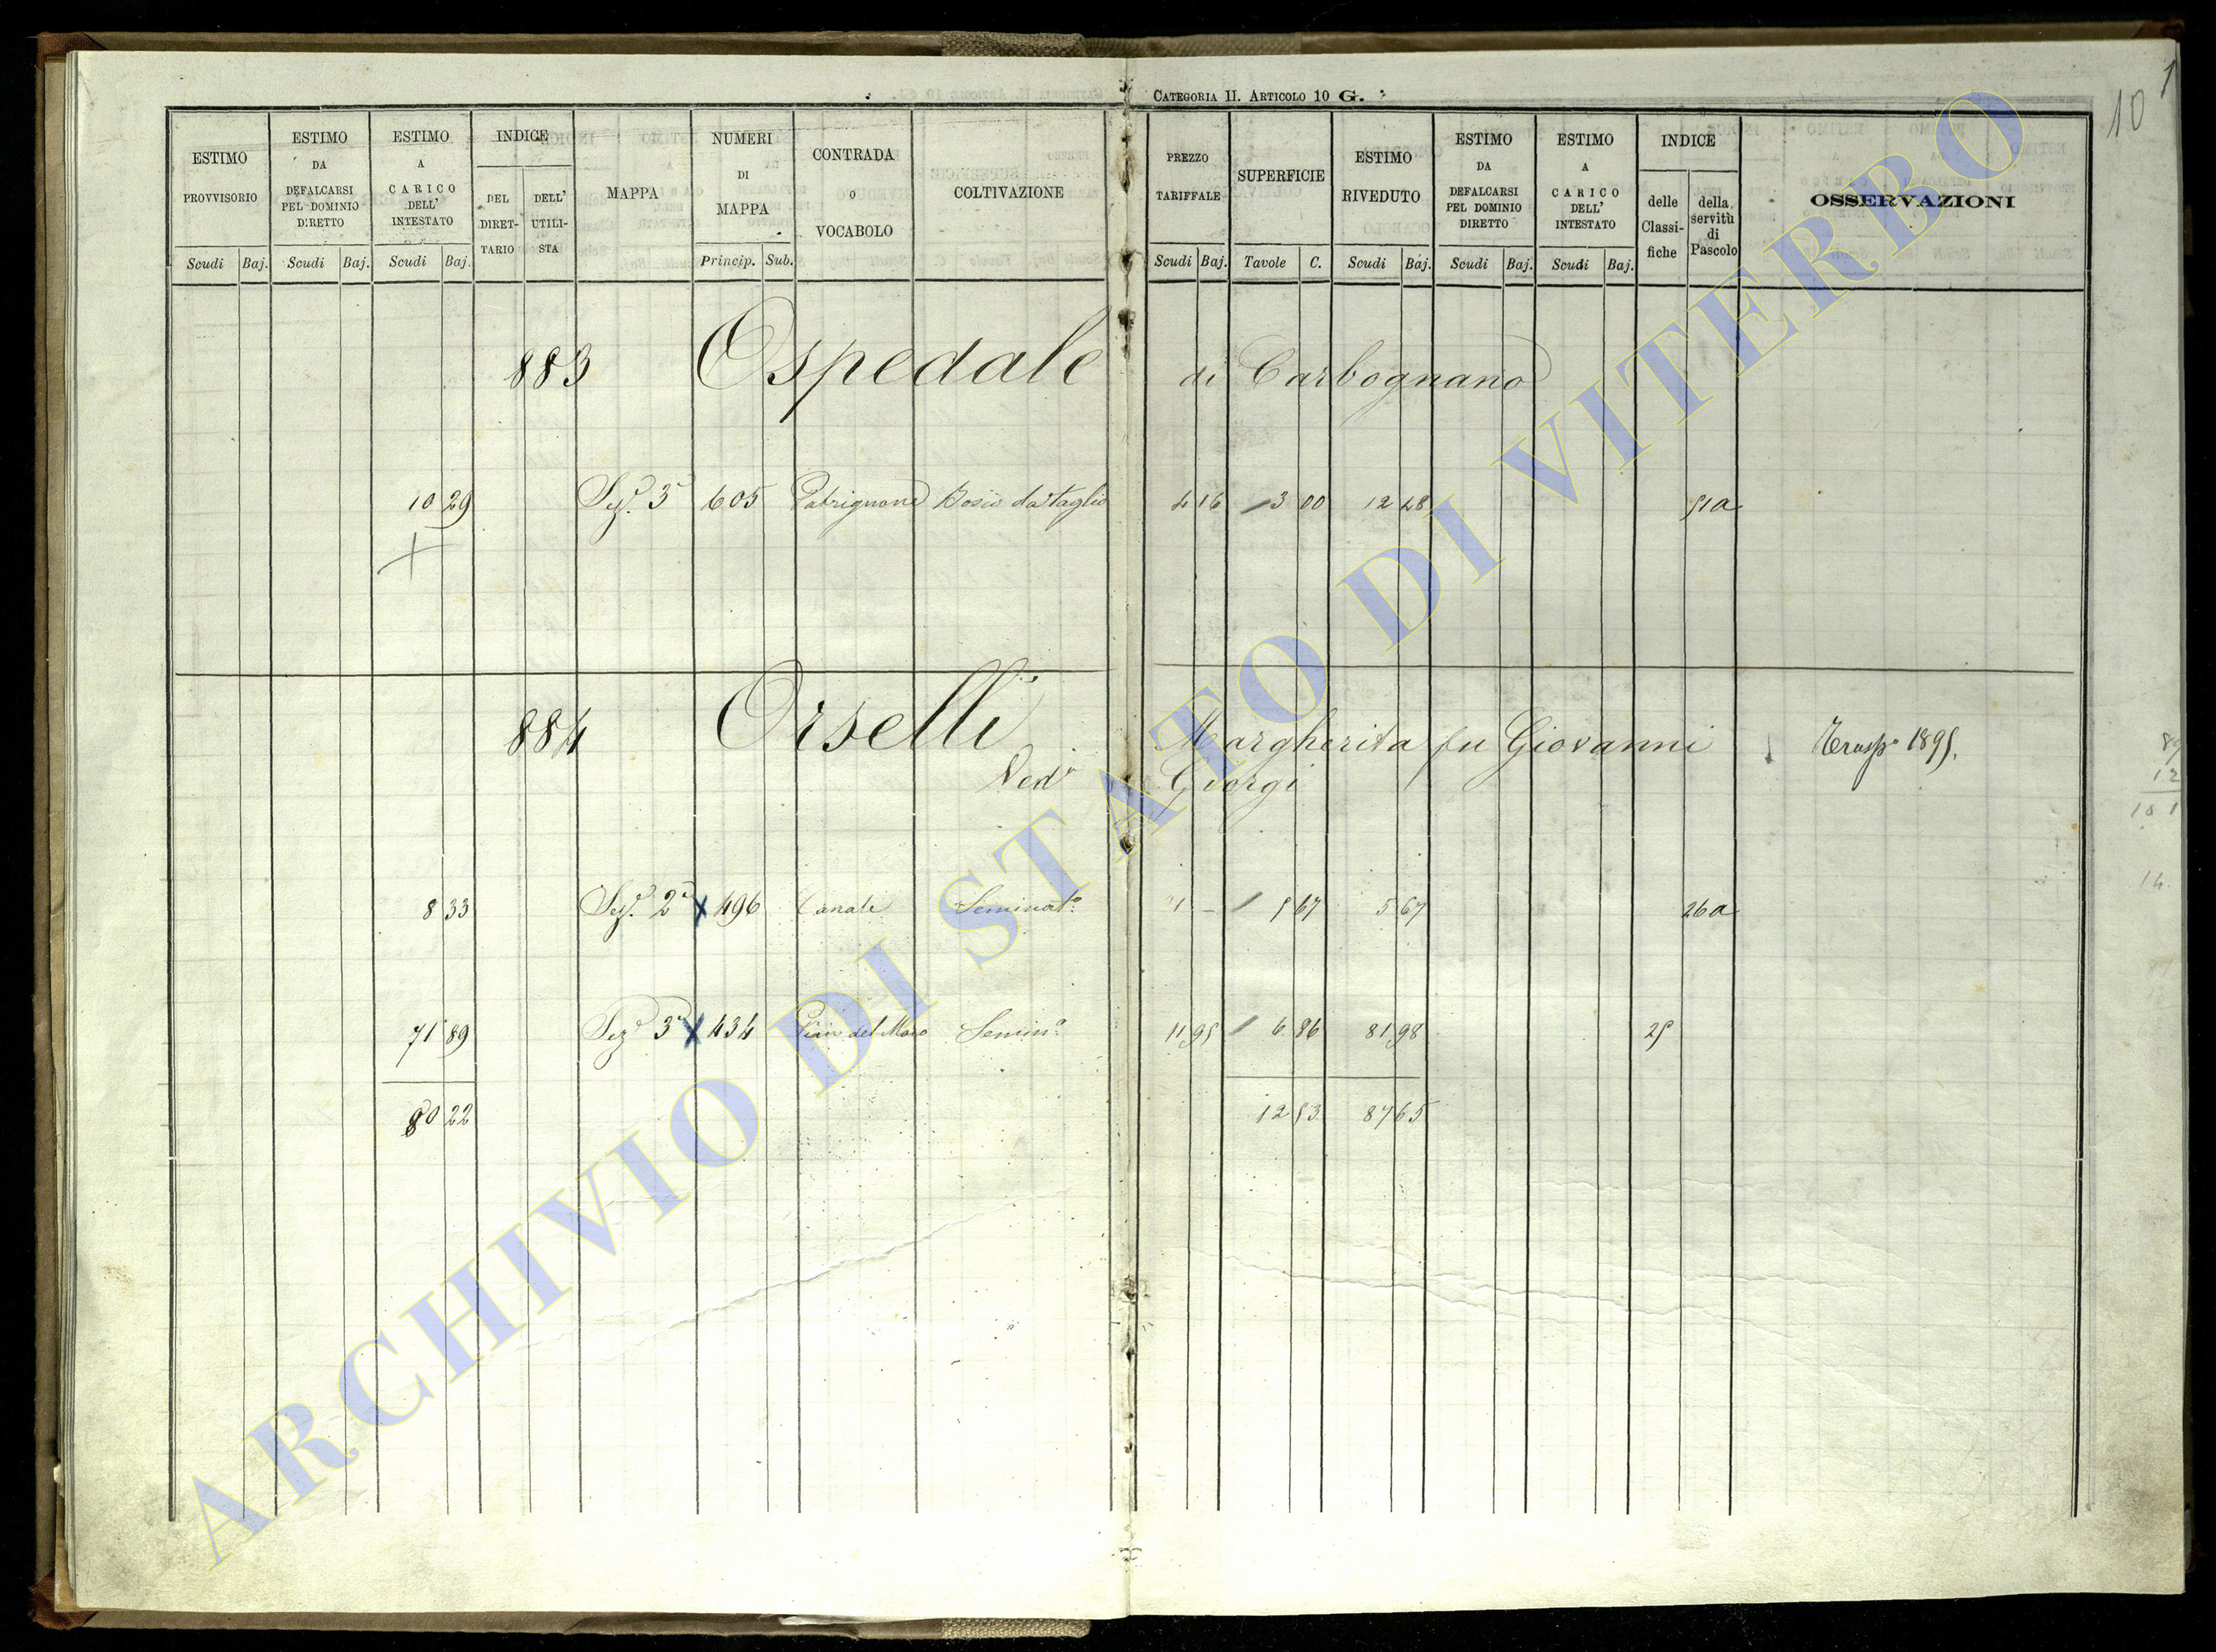 CATEGORIA II. ARTICOLO 10 G.
10
ESTIMO PROVVISORIO
ESTIMO DA DEFALCARSI PEL DOMINIO DIRETTO
ESTIMO A CARICO DELL' INTESTATO
INDICE
DEL DIRET-TARIO
DELL' UTILI-STA
MAPPA
NUMERI DI MAPPA
CONTRADA O VOCABOLO
COLTIVAZIONE
PREZZO TARIFFALE
SUPERFICIE
ESTIMO RIVEDUTO
ESTIMO DA DEFALCARSI PEL DOMINIO DIRETTO
ESTIMO A CARICO DELL' INTESTATO
INDICE
delle Classi-fiche
della servitù di Pascolo
OSSERVAZIONI
Scudi Baj. Scudi Baj. Scudi Baj. Princip. Sub. Scudi Baj. Tavole C. Scudi Baj. Scudi Baj. Scudi Baj.
883 Ospedale di Carbognano
10 29 Sez.e 3a 605 Patrignone Bosco da taglio 4 16 3 00 12 48 51a
884 Orselli Margherita fu Giovanni Trasp.o 1895.
Ved.a Giorgi
8 33 Sez.e 2a x 496 Canale Seminat.o 1 — 5 67 5 67 26a
71 89 Sez.e 3a x 434 Pian del Moro Semin.o 11 95 6 86 81 98 25
80 22 12 53 87 65
ARCHIVIO DI STATO DI VITERBO